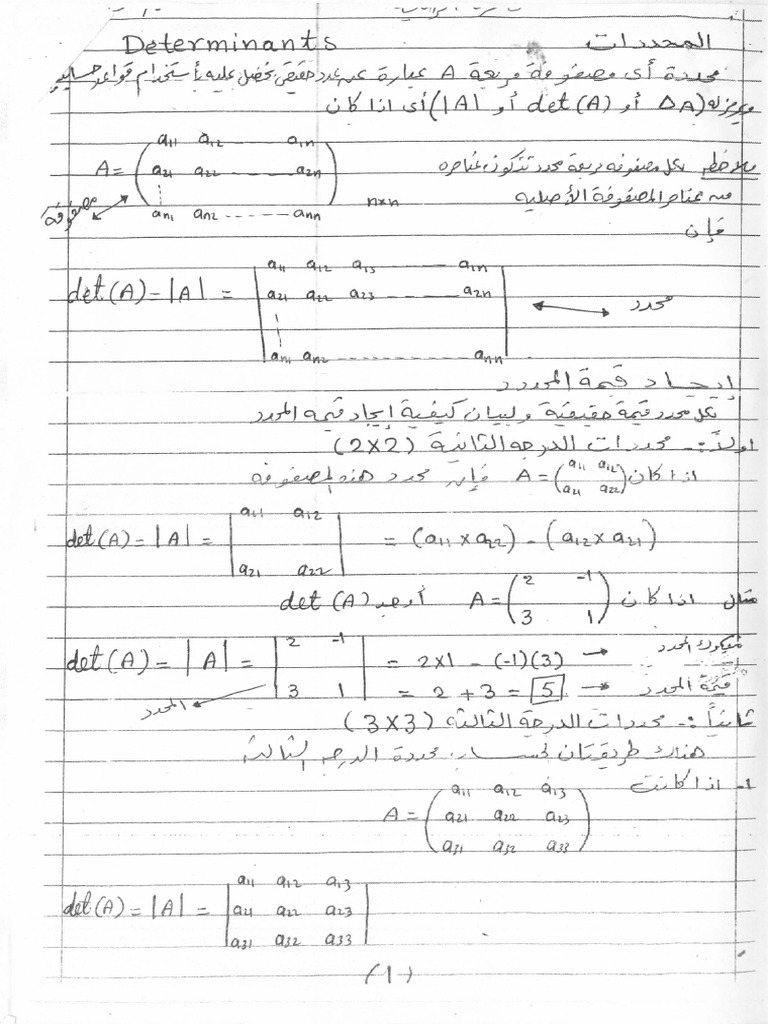 المحددات Determinants
محددة أي مصفوفة مربعة A عبارة عن عدد حقيقي نحصل عليه بأستخدام قواعد حسابية
ويرمز له (|A| أو det(A) أو ΔA) أي اذا كان
A = (a11 a12 ---- a1n
a21 a22 ----- a2n
an1 an2 ------ ann) n×n
مصفوفة
ملاحظه لكل مصفوفه مربعة محدد تتكون عناصره
من عناصر المصفوفة الأصليه
فإن
det(A) = |A| = |a11 a12 a13 ---- a1n
a21 a22 a23 ------ a2n
an1 an2 -------------- ann|
محدد
إيجاد قيمة المحدد
لكل محدد قيمة حقيقية ولبيان كيفية إيجاد قيمه المحدد
اولاً :- محددات الدرجه الثانية (2×2)
اذا كان A = (a11 a12
a21 a22) فإن محدد هذه المصفوفه
det(A) = |A| = |a11 a12
a21 a22| = (a11 × a22) - (a12 × a21)
مثال اذا كان A = (2 -1
3 1) أوجد det(A)
det(A) = |A| = |2 -1
3 1| = 2×1 - (-1)(3) → مفكوك المحدد
= 2 + 3 = 5 → قيمة المحدد
المحدد
ثانياً :- محددات الدرجة الثالثه (3×3)
هناك طريقتان لحساب محددة الدرجه الثالثه
1- اذا كانت
A = (a11 a12 a13
a21 a22 a23
a31 a32 a33)
det(A) = |A| = |a11 a12 a13
a21 a22 a23
a31 a32 a33|
(1)